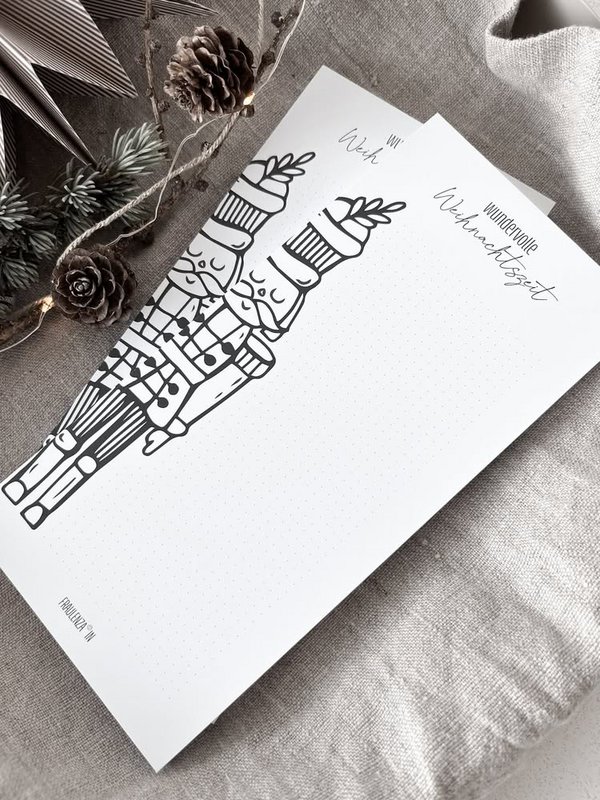 wundervolle
Weihnachtszeit
wu
Weih
FRÄULENZA® IN